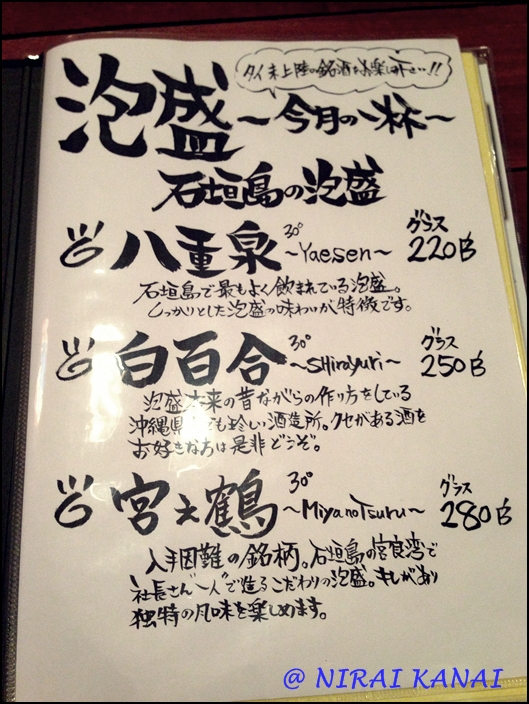 タイ未上陸の銘酒をお楽しみ下さい!!
泡盛〜今月の一杯〜
石垣島の泡盛
八重泉 30° 〜Yaesen〜 グラス 220B
石垣島で最もよく飲まれている泡盛。
しっかりとした泡盛の味わいが特徴です。
白百合 30° 〜SHirayuri〜 グラス 250B
泡盛本来の昔ながらの作り方をしている
沖縄県でも珍しい酒造所。クセがある酒を
お好きな方は是非どうぞ。
宮之鶴 30° 〜MiyanoTsuru〜 グラス 280B
入手困難の銘柄。石垣島の宮良湾で
社長さん"一人"で造るこだわりの泡盛。キレがあり
独特の風味を楽しめます。
@ NIRAI KANAI